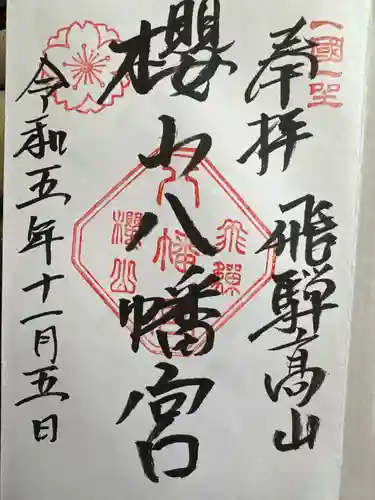 一國一宮
奉拝 飛騨高山
櫻山八幡宮
八幡
飛騨
櫻山
令和五年十一月五日